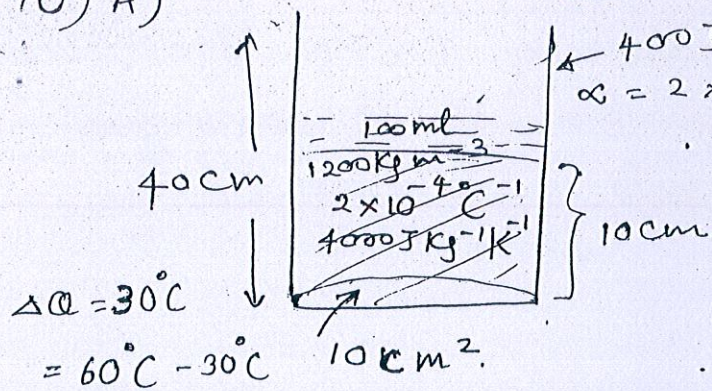 10) A)
400J
α = 2 ×
100ml
1200Kg m⁻³
40cm
2×10⁻⁴ °C⁻¹
4000J Kg⁻¹K⁻¹
10cm
ΔQ = 30°C
= 60°C - 30°C
10cm².